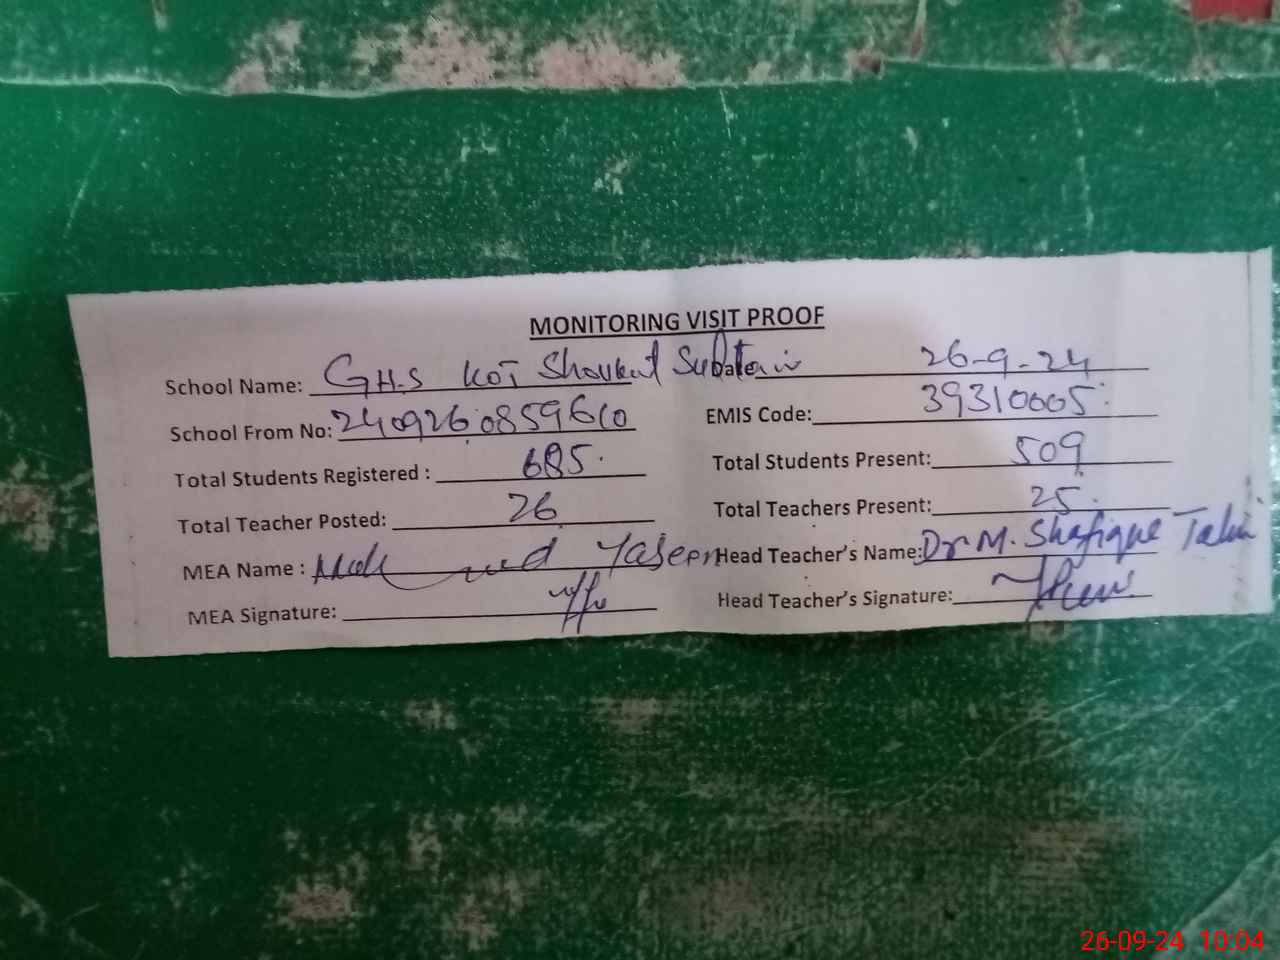 MONITORING VISIT PROOF
School Name: G.H.S KOT Shoukat Date: 26-9-24
School From No: 240926085961O EMIS Code: 39310005
Total Students Registered : 685 Total Students Present: 509
Total Teacher Posted: 26 Total Teachers Present: 25
MEA Name : Yaseen Head Teacher's Name: Dr M. Shafique
MEA Signature: Head Teacher's Signature:
26-09-24 10:04